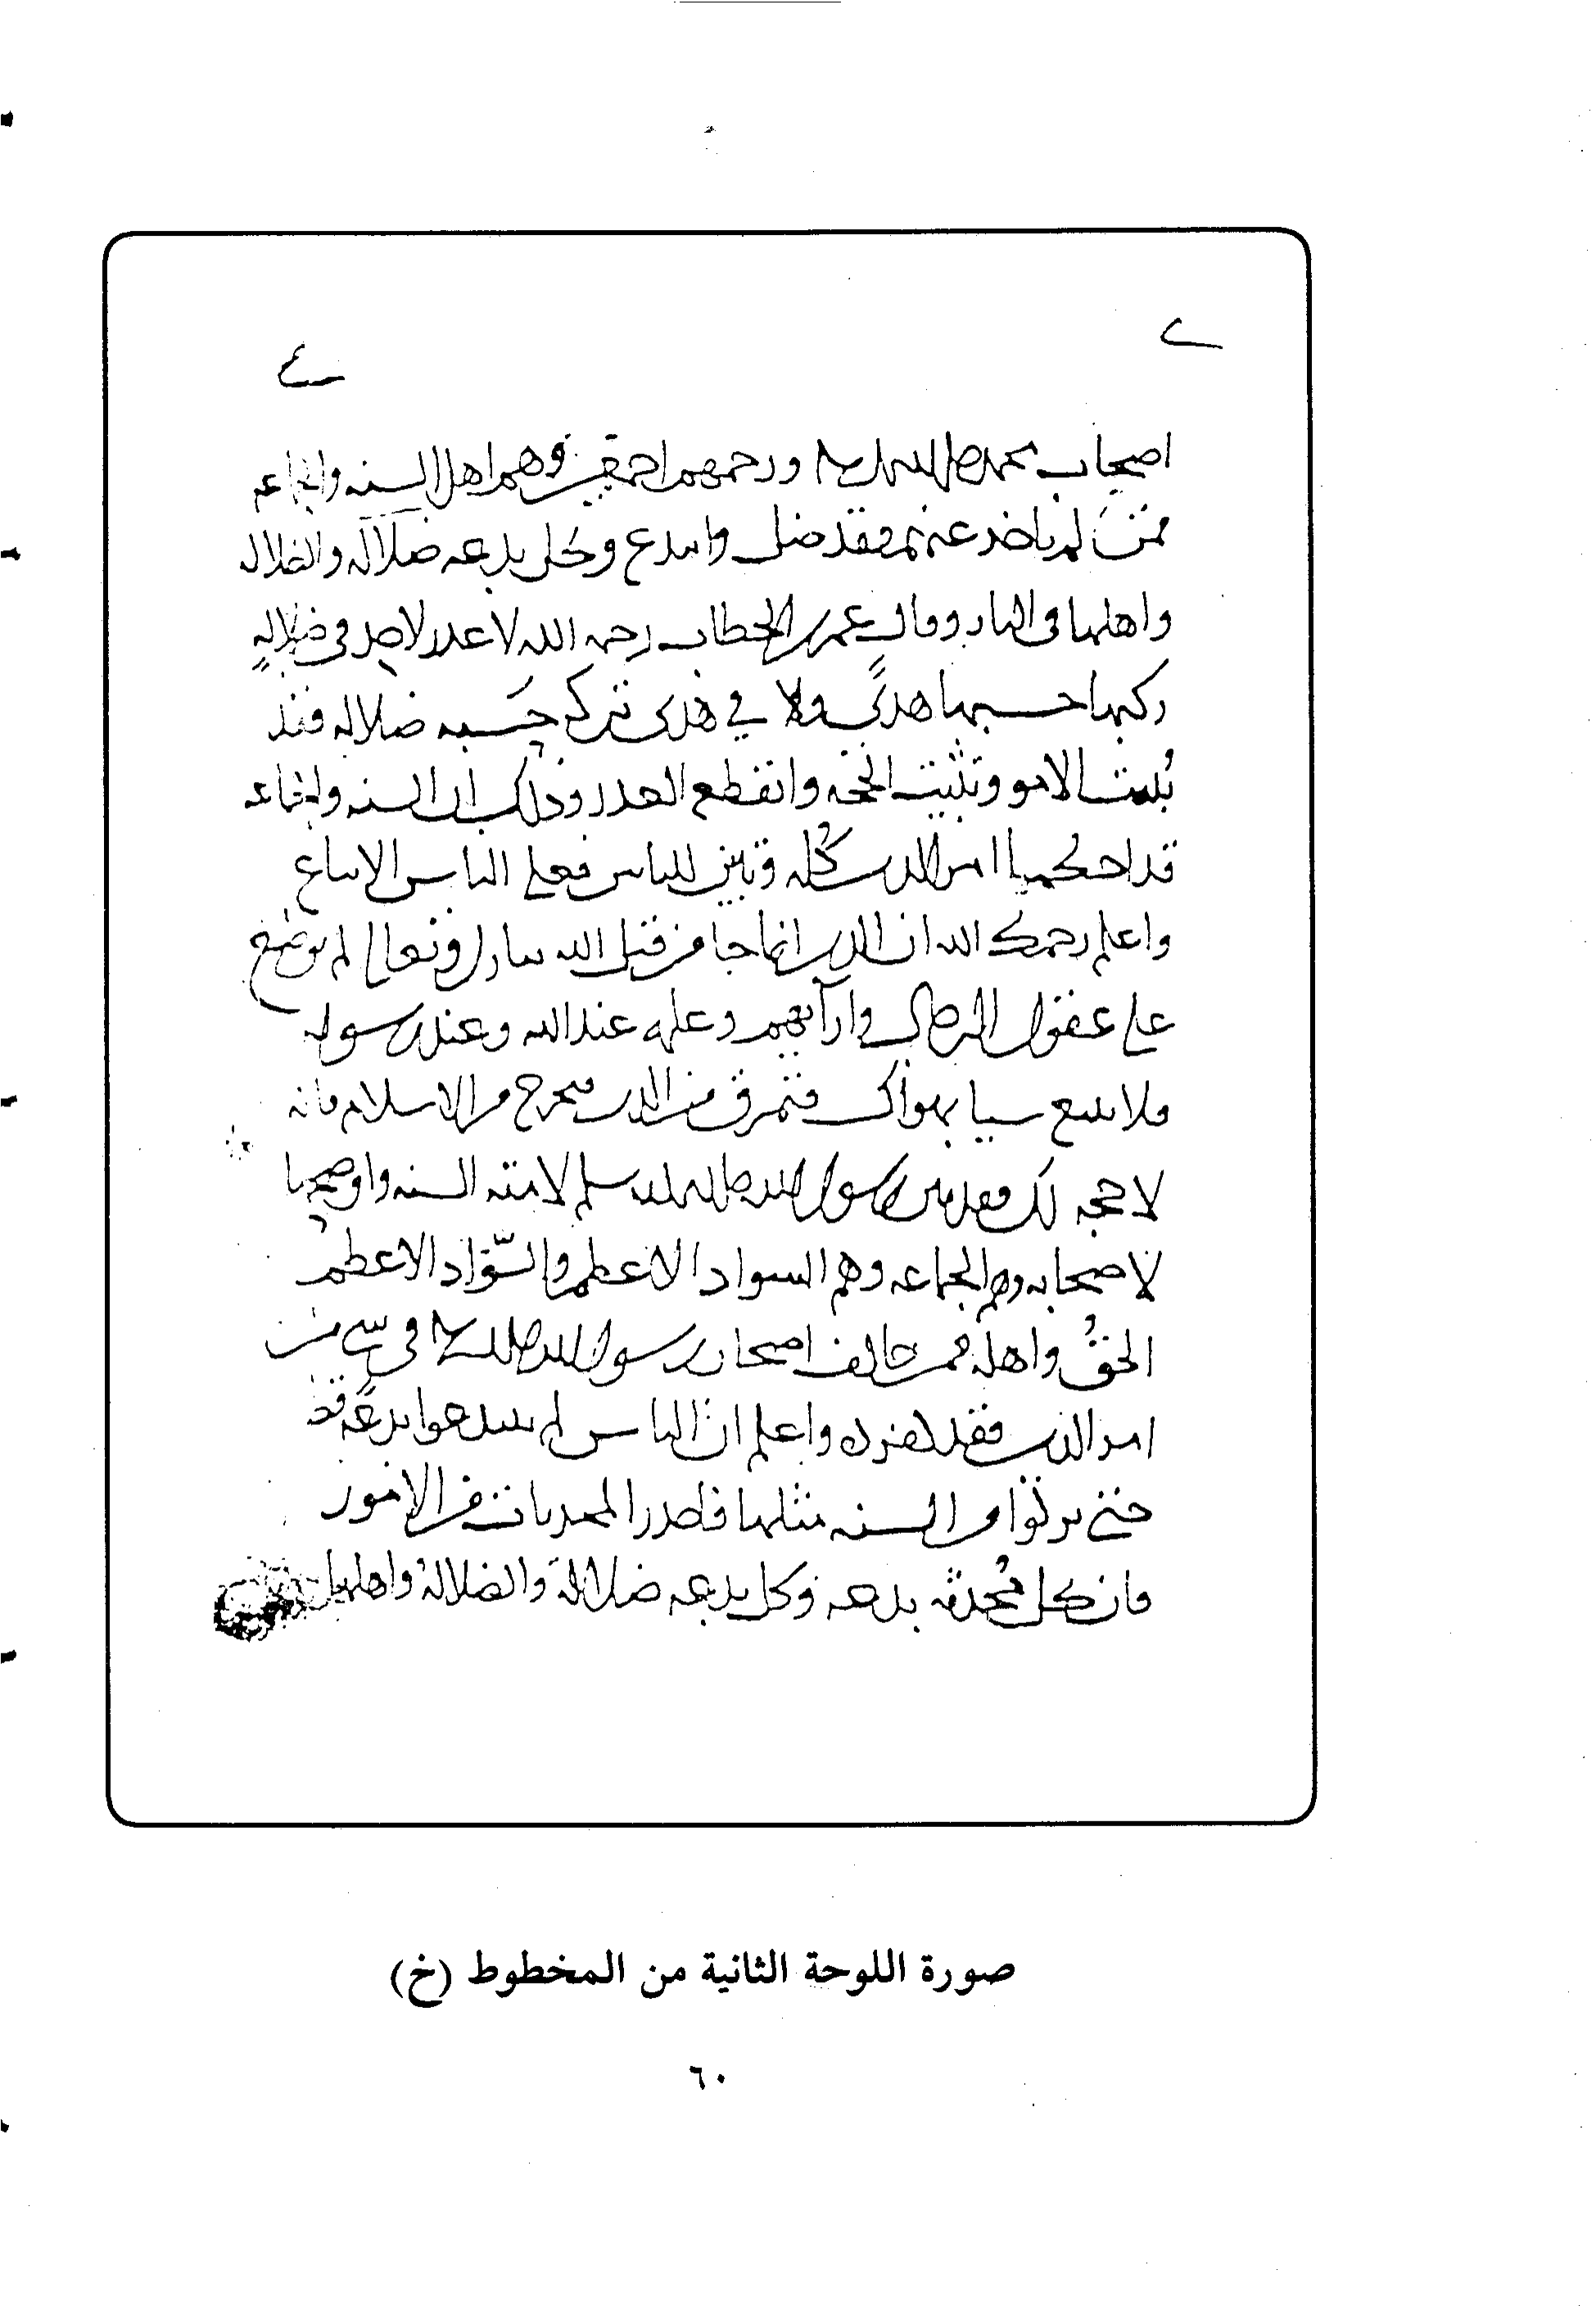 ٢
٤
اصحاب محمد صلى الله عليه وسلم ورحمهم اجمعين وهم اهل السنه والجماعه
فمن لم ياخذ عنهم فقد ضل وابتدع وكل بدعه ضلاله والضلاله
واهلها في النار وقال عمر بن الخطاب رحمه الله لا عذر لاحد في ضلاله
ركبها حسبها هدى ولا في هدى تركه حسبه ضلاله فقد
بُينت الامور وتثبت الحجه وانقطع العذر وذلك ان السنه والجماعه
قد احكما امر الدين كُله وتبين للناس فعلى الناس الاتباع
واعلم رحمك الله ان الدين انما جا من قبل الله تبارك وتعالى لم يوضع
على عقول الرجال وارآيهم وعلمه عند الله وعند رسوله
فلا تتبع شيا بهواك فتمرق من الدين فتخرج من الاسلام فانه
لا حجه لك فقد بين رسول الله صلى الله عليه وسلم لامته السنه واوضحها
لاصحابه وهم الجماعه وهم السواد الاعظم والسّواد الاعظم
الحقُ واهله فمن خالف اصحاب رسول الله صلى الله عليه وسلم في شي من
امر الدين فقد كفر واعلم ان الناس لم يبتدعوا بدعه قط
حتى تركوا من السنه مثلها فاحذر المحدثات من الامور
فان كل مُحدثه بدعه وكل بدعه ضلالة والضلالة واهلها
صورة اللوحة الثانية من المخطوط (خ)
٦٠